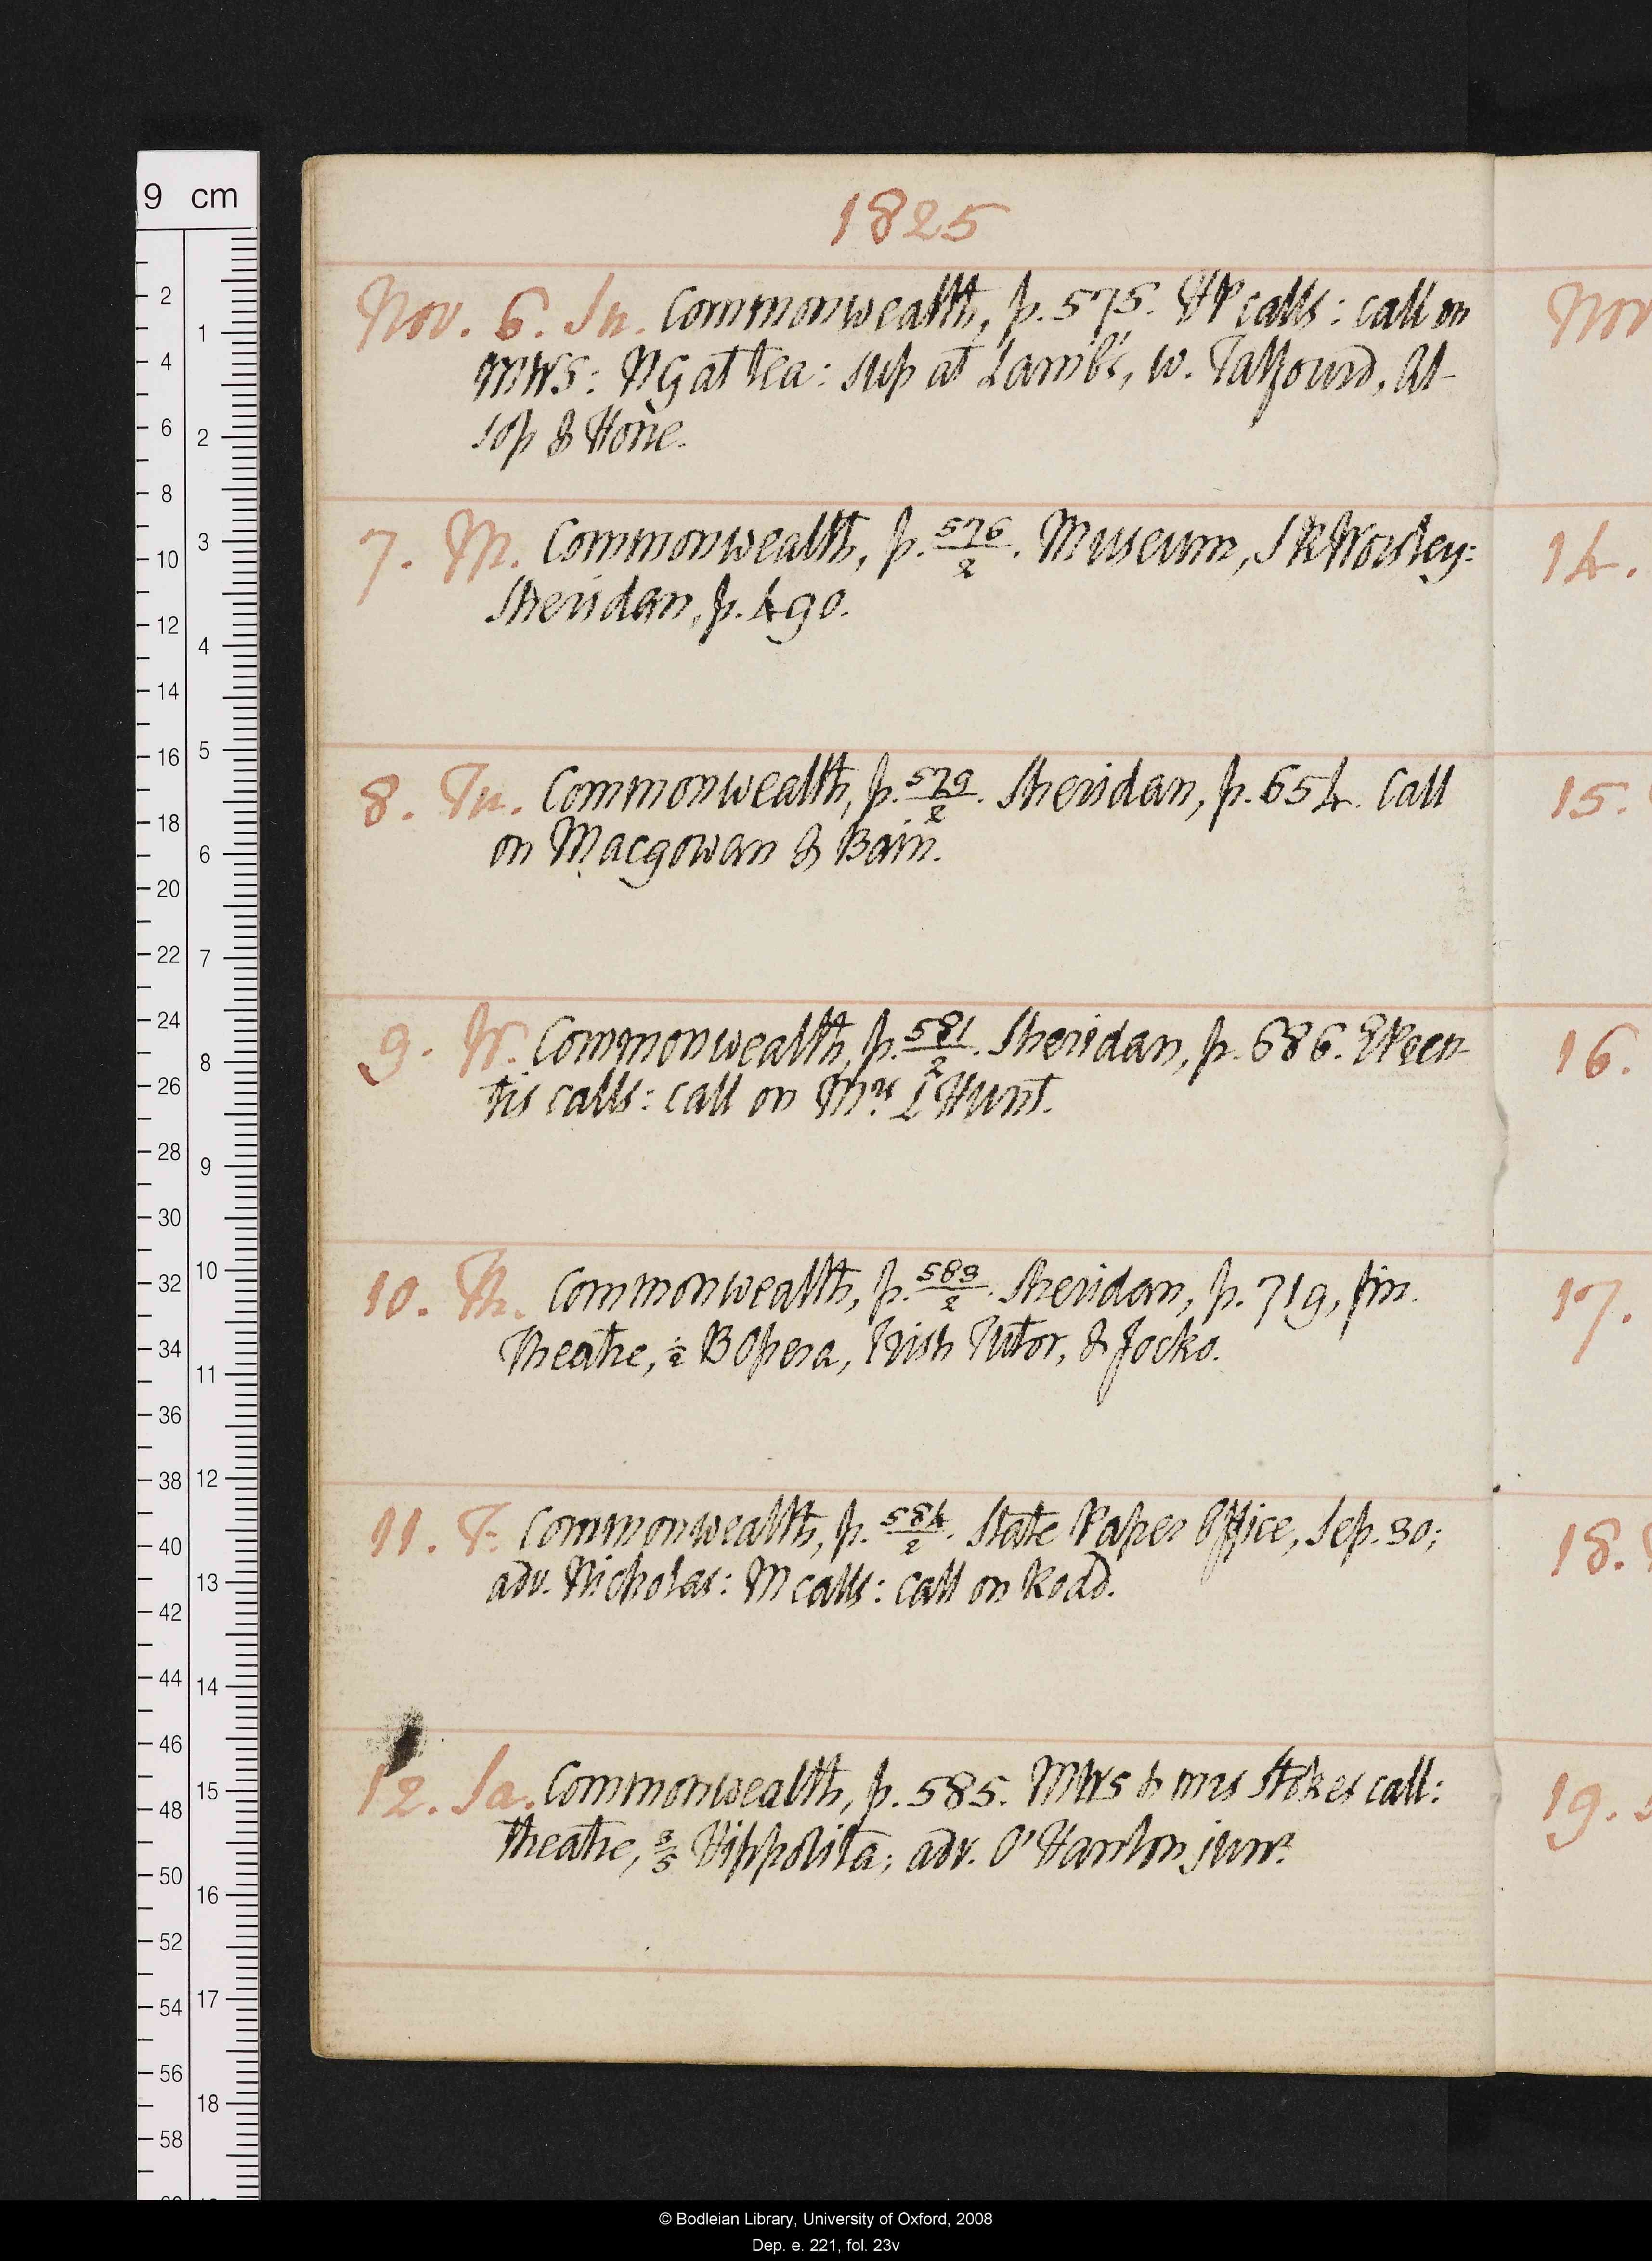 1825
Nov. 6. Su. Commonwealth, p. 575. HP calls: call on
MWS: NG at tea: sup at Lamb's, w. Talfourd, Al-
sop & Hone.
7. M. Commonwealth, p. 576/2. Museum, S R Worsley:
Sheridan, p. 490.
8. Tu. Commonwealth, p. 579/2. Sheridan, p. 654. Call
on Macgowan & Bain.
9. W. Commonwealth, p. 581/2. Sheridan, p. 686.
tis calls: call on Mrs L Hunt.
10. Th. Commonwealth, p. 583/2. Sheridan, p. 719, fin.
Theatre, ½ B Opera, Irish Tutor, & Jocko.
11. F. Commonwealth, p. 584/2. State Paper Office, Sep. 30;
adv. Nicholas: M calls: call on Rodd.
12. Sa. Commonwealth, p. 585. MWS & mrs Stokes call:
theatre, 3/5 Hippolita; adv. O'Hanlon junr.
Nov
14.
15.
16.
17.
18.
19.
9 cm
2
4
6
8
10
12
14
16
18
20
22
24
26
28
30
32
34
36
38
40
42
44
46
48
50
52
54
56
58
1
2
3
4
5
6
7
8
9
10
11
12
13
14
15
16
17
18
© Bodleian Library, University of Oxford, 2008
Dep. e. 221, fol. 23v